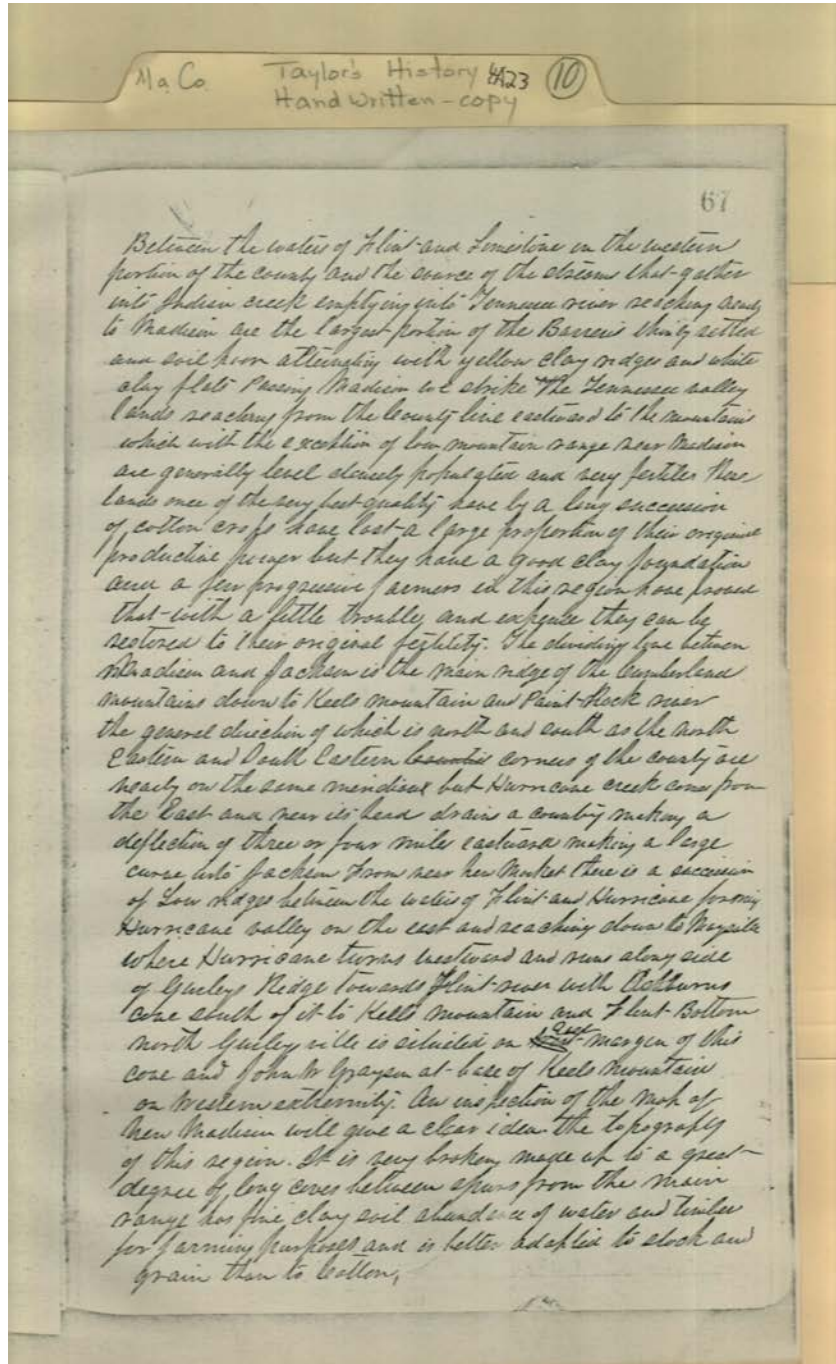 Ma Co. Taylor's History 4A23 10
Hand written - copy
67
Between the waters of Flint and Limestone in the western
portion of the county and the source of the streams that gather
into Indian creek emptying into Tennessee river reaching nearly
to Madison are the largest portion of the Barrens thinly settled
and soil poor alternating with yellow clay ridges and white
clay flats Passing Madison we strike The Tennessee valley
lands reaching from the County line eastward to the mountains
which with the exception of low mountain range near Madison
are generally level densely populated and very fertile These
lands once of the very best quality have by a long succession
of cotton crops have lost a large proportion of their original
productive power but they have a good clay foundation
and a few progressive farmers in this region have proved
that with a little trouble and expense they can be
restored to their original fertility. The dividing line between
Madison and Jackson is the main ridge of the Cumberland
mountains down to Keels mountain and Paint Rock river
the general direction of which is north and south as the north
Eastern and South Eastern corners of the county are
nearly on the same meridian but Hurricane creek come from
the East and near its head drains a county making a
deflection of three or four miles eastward making a large
curve into Jackson From near New Market there is a succession
of Low ridges between the waters of Flint and Hurricane forming
Hurricane valley on the east and reaching down to Maysville
where Hurricane turns westward and runs along side
of Gurleys Ridge towards Flint river with
cove south of it to Keels mountain and Flint Bottom
north Gurleyville is situated on East margin of this
cove and John W Grayson at base of Keels mountain
on Western extremity. An inspection of the map of
New Madison will give a clear idea the topography
of this region. It is very broken, made up to a great
degree of long coves between spurs from the main
range has fine clay soil abundance of water and timber
for farming purposes and is better adapted to stock and
grain than to Cotton,